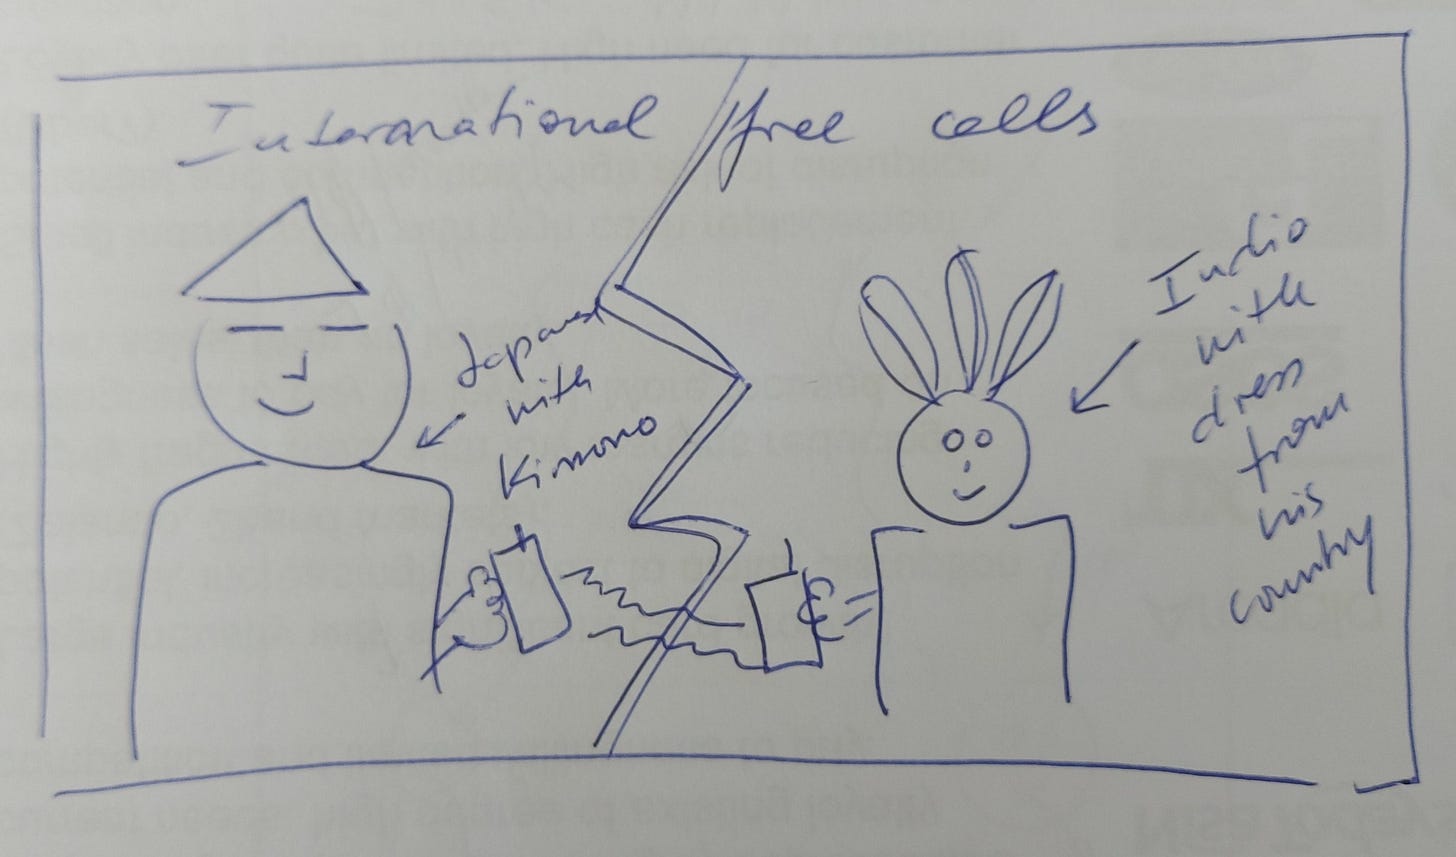 International free calls
Japanese
with
Kimono
Indio
with
dress
from
his
country